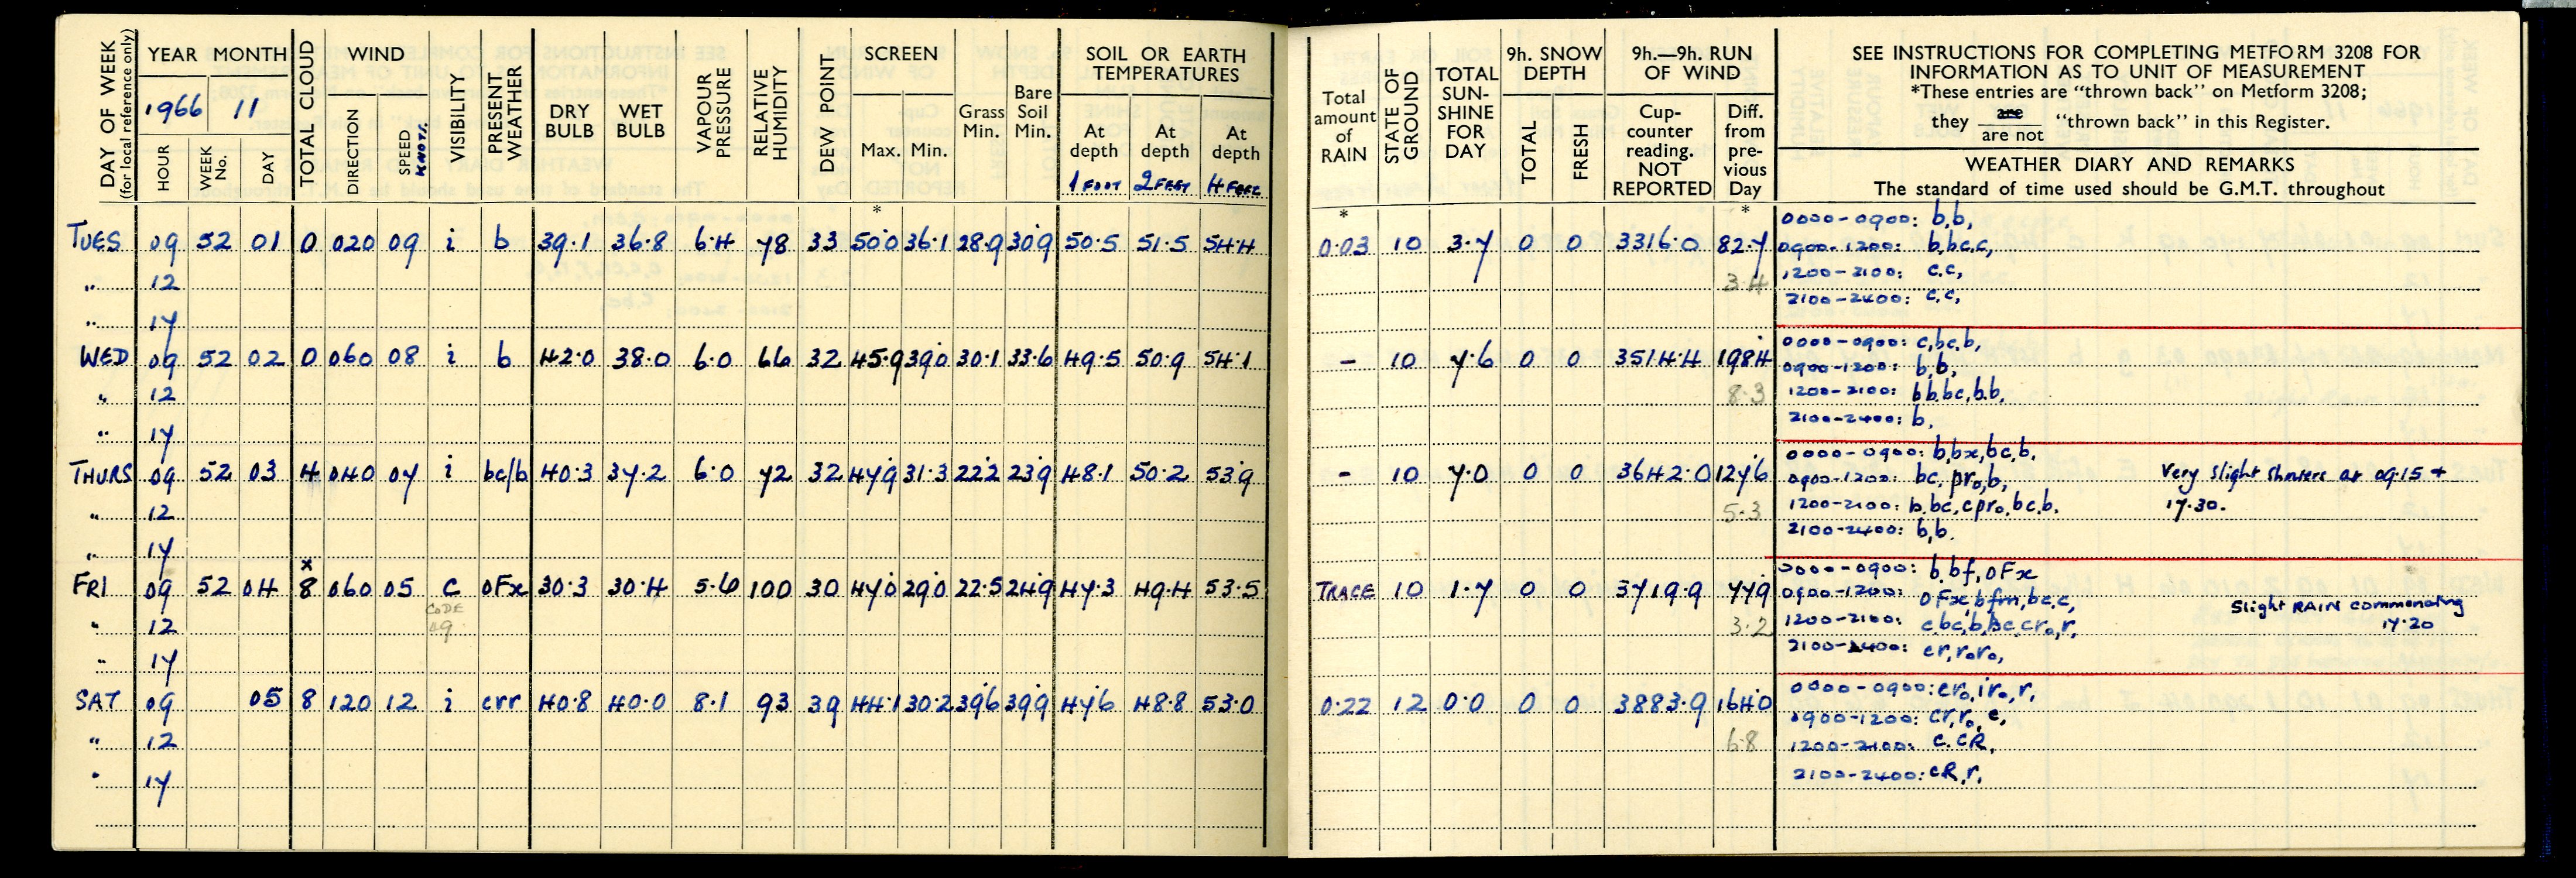 DAY OF WEEK
(for local reference only)
YEAR MONTH
1966 11
HOUR
WEEK No.
DAY
TOTAL CLOUD
WIND
DIRECTION
SPEED KNOTS.
VISIBILITY
PRESENT WEATHER
DRY BULB
WET BULB
VAPOUR PRESSURE
RELATIVE HUMIDITY
DEW POINT
SCREEN
Max. Min.
*
Grass Min.
Bare Soil Min.
SOIL OR EARTH TEMPERATURES
At depth 1 FOOT
At depth 2 FEET
At depth 4 FEET
Total amount of RAIN
*
STATE OF GROUND
TOTAL SUN-SHINE FOR DAY
9h. SNOW DEPTH
TOTAL
FRESH
9h.—9h. RUN OF WIND
Cup-counter reading. NOT REPORTED
Diff. from pre-vious Day
*
SEE INSTRUCTIONS FOR COMPLETING METFORM 3208 FOR
INFORMATION AS TO UNIT OF MEASUREMENT
*These entries are "thrown back" on Metform 3208;
they are / are not "thrown back" in this Register.
WEATHER DIARY AND REMARKS
The standard of time used should be G.M.T. throughout
TUES 09 52 01 0 020 09 i b 39.1 36.8 6.4 78 33 50.0 36.1 28.9 30.9 50.5 51.5 54.4 0.03 10 3.7 0 0 3316.0 82.7
0000-0900: b,b,
0900-1200: b,bc,c,
" 12 3.4
1200-2100: c.c,
2100-2400: c.c,
" 17
WED 09 52 02 0 060 08 i b 42.0 38.0 6.0 66 32 45.9 39.0 30.1 33.6 49.5 50.9 54.1 - 10 7.6 0 0 3514.4 198.4
0000-0900: c,bc,b,
0900-1200: b,b,
" 12 8.3
1200-2100: b b.bc,b.b.
2100-2400: b,
" 17
THURS 09 52 03 4 040 07 i bc/b 40.3 37.2 6.0 72 32 47.9 31.3 22.2 23.9 48.1 50.2 53.9 - 10 7.0 0 0 3642.0 127.6
0000-0900: b,bx,bc,b.
0900-1200: bc, pro,b, Very slight showers at 09.15 +
" 12 5.3
1200-2100: b.bc,cpro,bc.b. 17.30.
2100-2400: b,b.
" 17
x
FRI 09 52 04 8 060 05 C OFx 30.3 30.4 5.6 100 30 47.0 29.0 22.5 24.9 47.3 49.4 53.5 TRACE 10 1.7 0 0 3719.9 77.9
CODE 09.
0000-0900: b.bf,OFx
0900-1200: OFx,bfm,bc.c, Slight RAIN commencing
" 12 3.2
1200-2100: cbc,b,bc.cro,r, 17.20
2100-2400: cr,roro,
" 17
SAT 09 05 8 120 12 i crr 40.8 40.0 8.1 93 39 44.1 30.2 39.6 39.9 47.6 48.8 53.0 0.22 12 0.0 0 0 3883.9 164.0
0000-0900: cro,iro,r,
0900-1200: cr,ro,c,
" 12 6.8
1200-2100: c.cR,
" 17
2100-2400: cR,r,